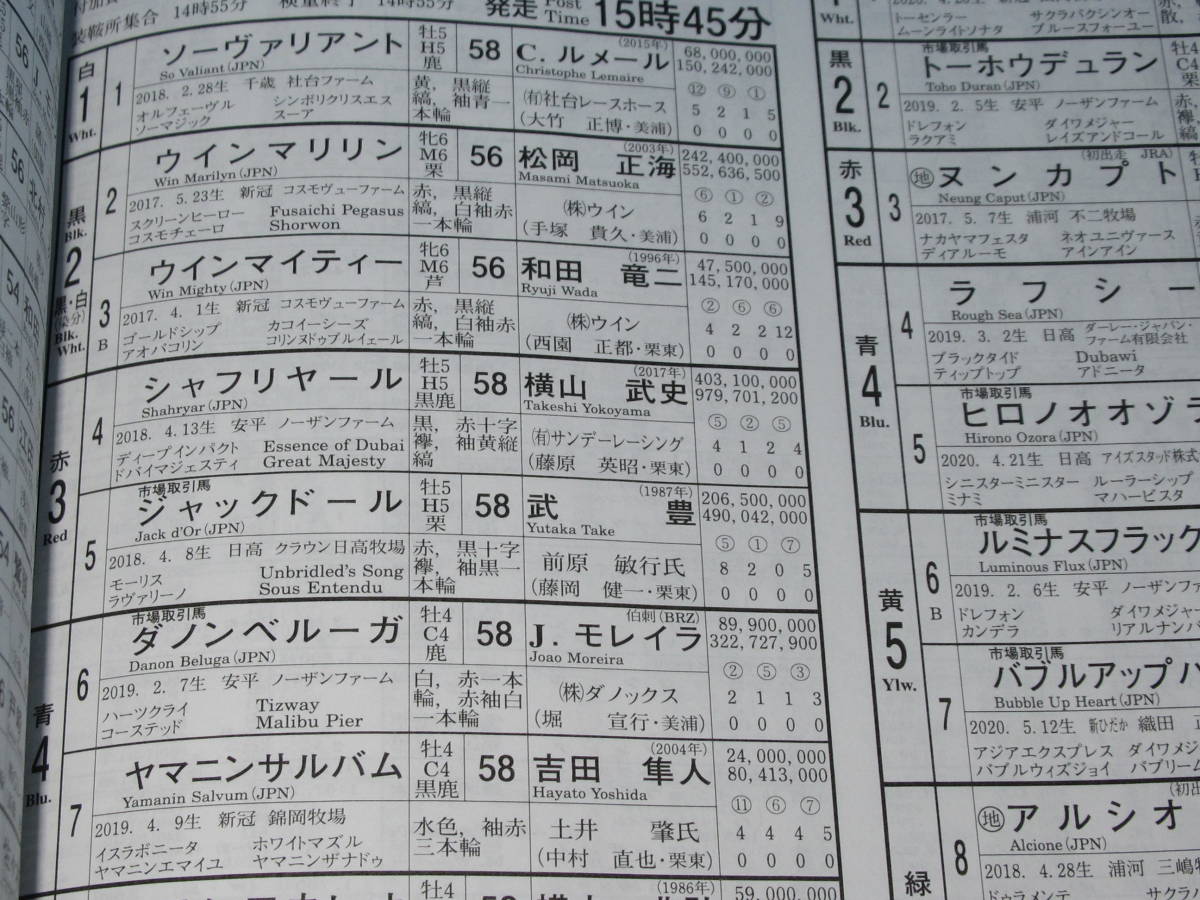 装鞍所集合 14時55分 検量終了 14時55分 発走 Post Time 15時45分
白 1 Wht.
1
ソーヴァリアント
So Valiant(JPN)
牡5 H5 鹿
58
(2015年)
C. ルメール
Christophe Lemaire
68,000,000
150,242,000
2018. 2.28生 千歳 社台ファーム
オルフェーヴル シンボリクリスエス
ソーマジック スーア
黄，黒縦縞，袖青一本輪
(有)社台レースホース
(大竹 正博・美浦)
⑫ ⑨ ①
5 2 1 5
0 0 0 0
黒 Blk. 2 黒・白(染分) Blk. Wht.
2
ウインマリリン
Win Marilyn(JPN)
牝6 M6 栗
56
(2003年)
松岡 正海
Masami Matsuoka
242,400,000
552,636,500
2017. 5.23生 新冠 コスモヴューファーム
スクリーンヒーロー Fusaichi Pegasus
コスモチェーロ Shorwon
赤，黒縦縞，白袖赤一本輪
(株)ウイン
(手塚 貴久・美浦)
⑥ ① ②
6 2 1 9
0 0 0 0
3 B
ウインマイティー
Win Mighty(JPN)
牝6 M6 芦
56
(1996年)
和田 竜二
Ryuji Wada
47,500,000
145,170,000
2017. 4. 1生 新冠 コスモヴューファーム
ゴールドシップ カコイーシーズ
アオバコリン コリンヌドゥブルイェール
赤，黒縦縞，白袖赤一本輪
(株)ウイン
(西園 正都・栗東)
② ⑥ ⑥
4 2 2 12
0 0 0 0
赤 3 Red
4
シャフリヤール
Shahryar(JPN)
牡5 H5 黒鹿
58
(2017年)
横山 武史
Takeshi Yokoyama
403,100,000
979,701,200
2018. 4.13生 安平 ノーザンファーム
ディープインパクト Essence of Dubai
ドバイマジェスティ Great Majesty
黒，赤十字襷，袖黄縦縞
(有)サンデーレーシング
(藤原 英昭・栗東)
⑤ ② ⑤
4 1 2 4
0 0 0 0
5
市場取引馬
ジャックドール
Jack d'Or(JPN)
牡5 H5 栗
58
(1987年)
武 豊
Yutaka Take
206,500,000
490,042,000
2018. 4. 8生 日高 クラウン日高牧場
モーリス Unbridled's Song
ラヴァリーノ Sous Entendu
赤，黒十字襷，袖黒一本輪
前原 敏行氏
(藤岡 健一・栗東)
⑤ ① ⑦
8 2 0 5
0 0 0 0
青 4 Blu.
6
市場取引馬
ダノンベルーガ
Danon Beluga(JPN)
牡4 C4 鹿
58
伯刺(BRZ)
J. モレイラ
Joao Moreira
89,900,000
322,727,900
2019. 2. 7生 安平 ノーザンファーム
ハーツクライ Tizway
コーステッド Malibu Pier
白，赤一本輪，赤袖白一本輪
(株)ダノックス
(堀 宣行・美浦)
② ⑤ ③
2 1 1 3
0 0 0 0
7
ヤマニンサルバム
Yamanin Salvum(JPN)
牡4 C4 黒鹿
58
(2004年)
吉田 隼人
Hayato Yoshida
24,000,000
80,413,000
2019. 4. 9生 新冠 錦岡牧場
イスラボニータ ホワイトマズル
ヤマニンエマイユ ヤマニンザナドゥ
水色，袖赤三本輪
土井 肇氏
(中村 直也・栗東)
⑪ ⑥ ⑦
4 4 4 5
0 0 0 0
牡4
(1986年)
59,000,000
Wht.
トーセンラー サクラバクシンオー
ムーンライトソナタ ブルースフォーユー
黒 2 Blk.
2
市場取引馬
トーホウデュラン
Toho Duran(JPN)
2019. 2. 5生 安平 ノーザンファーム
ドレフォン ダイワメジャー
ラクアミ レイズアンドコール
赤 3 Red
3
(初出走 JRA)
㊍ヌンカプト
Neung Caput(JPN)
2017. 5. 7生 浦河 不二牧場
ナカヤマフェスタ ネオユニヴァース
ディアルーモ アインアイン
青 4 Blu.
4
ラフシー
Rough Sea(JPN)
2019. 3. 2生 日高 ダーレー・ジャパン・ファーム有限会社
ブラックタイド Dubawi
ティップトップ アドニータ
5
市場取引馬
ヒロノオオゾラ
Hirono Ozora(JPN)
2020. 4.21生 日高 アイズスタッド株式
シニスターミニスター ルーラーシップ
ミナミ マハービスタ
黄 5 Ylw.
6 B
市場取引馬
ルミナスフラック
Luminous Flux(JPN)
2019. 2. 6生 安平 ノーザンファ
ドレフォン ダイワメジャー
カンデラ リアルナンバ
7
市場取引馬
バブルアップハ
Bubble Up Heart(JPN)
2020. 5.12生 新ひだか 織田
アジアエクスプレス ダイワメジ
バブルウィズジョイ バブリーム
緑
8
(初出
アルシオ
Alcione(JPN)
2018. 4.28生 浦河 三嶋
ドゥラメンテ サクラ